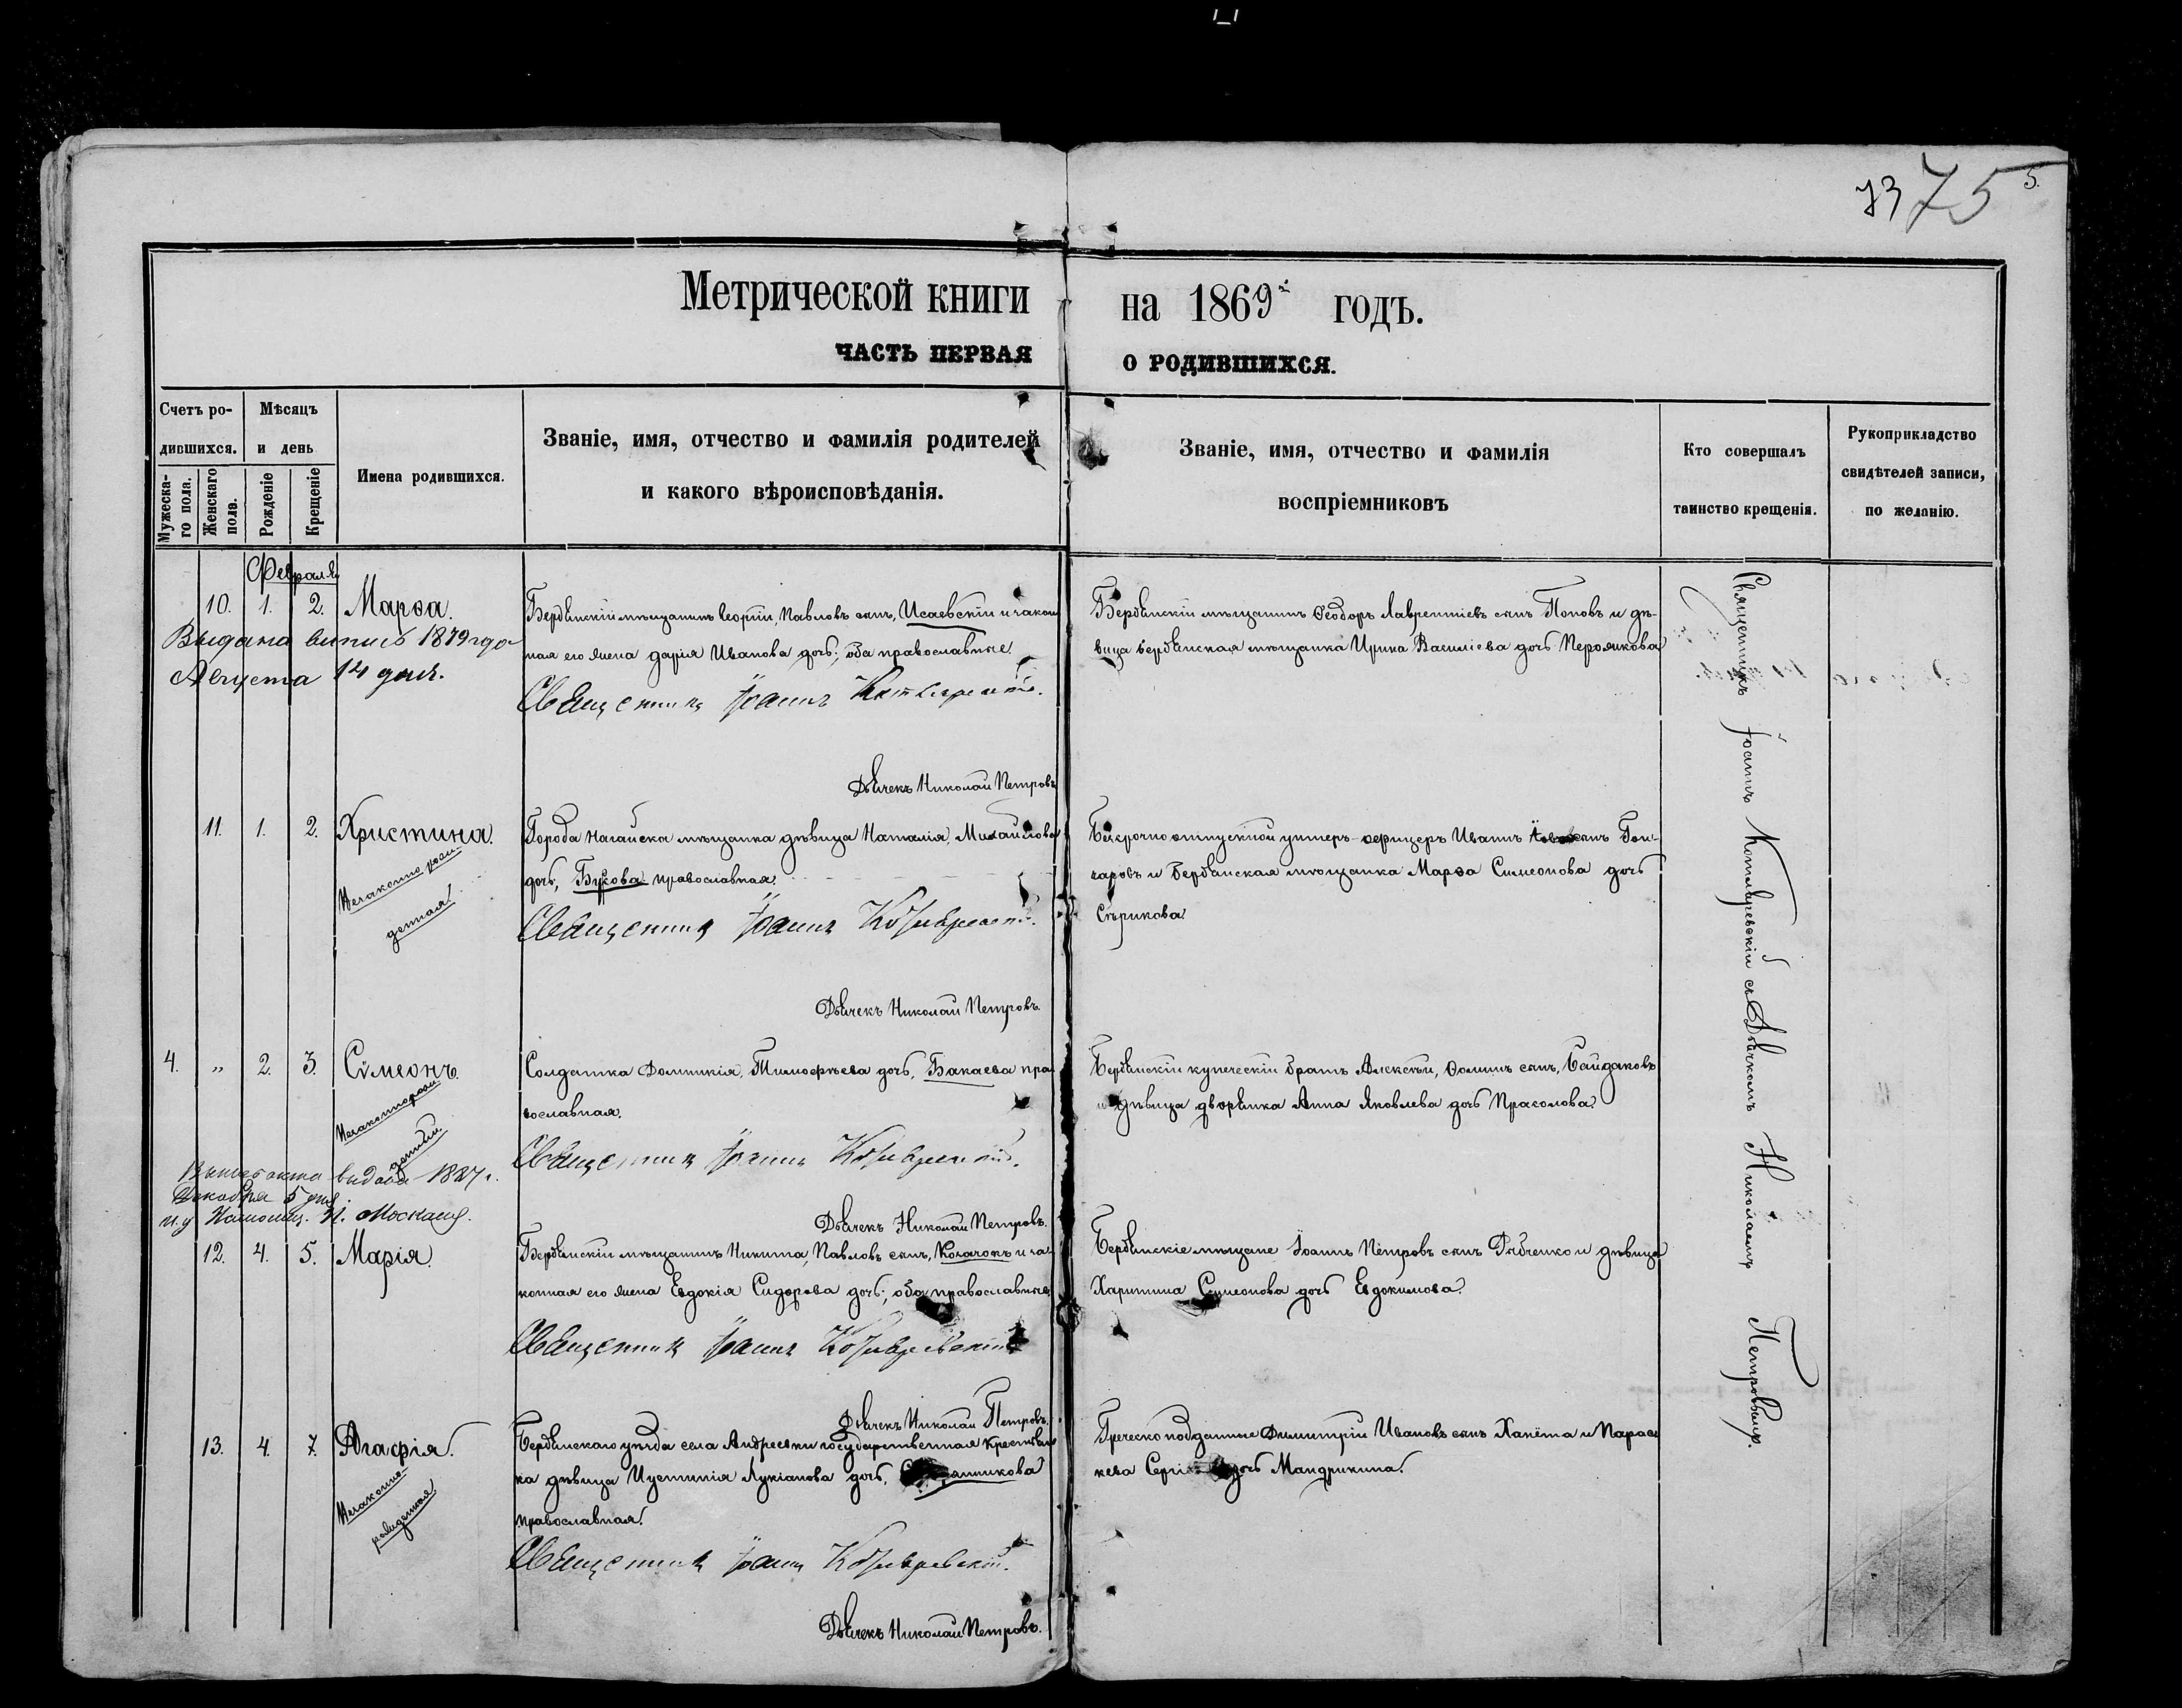 73 75 5.
Метрической книги на 1869й годъ.
ЧАСТЬ ПЕРВАЯ О РОДИВШИХСЯ.
Счетъ ро-
дившихся.
Мужеска-
го пола.
Женскаго
пола.
Мѣсяцъ
и день
Рожденіе
Крещеніе
Имена родившихся.
Званіе, имя, отчество и фамилія родителей
и какого вѣроисповѣданія.
Званіе, имя, отчество и фамилія
воспріемниковъ
Кто совершалъ
таинство крещенія.
Рукоприкладство
свидѣтелей записи,
по желанію.
Февраля
10. 1. 2. Марѳа.
Выдана выпись 1879 года
Августа 14 дня.
Бердянскій мѣщанинъ Георгій, Павловъ сынъ, Исаевскій и закон-
ная его жена Дарія Иванова дочь; оба православные.
Священникъ Іоаннъ Котляревскій.
Дьячекъ Николай Петровъ
Бердянскій мѣщанинъ Ѳеодоръ Лаврентіевъ сынъ Поповъ и дѣ-
вица бердянская мѣщанка Ирина Василіева дочь
11. 1. 2. Христина.
Незаконно рож-
денная.
Города Нагайска мѣщанка дѣвица Наталія, Михайлова
дочь, Букова православная.
Священникъ Іоаннъ Котляревскій.
Дьячекъ Николай Петровъ.
Безсрочно отпускной унтеръ-офицеръ Иванъ сынъ Гон-
чаровъ и Бердянская мѣщанка Марѳа Симеонова дочь
Сѣрикова
4. " 2. 3. Сѵмеонъ.
Незаконнорож-
денный.
выдана 1887 г.
Декабря 5 дня
Солдатка Домникія, Тимофѣева дочь, Бакаева пра-
вославная.
Священникъ Іоаннъ Котляревскій.
Дьячекъ Николай Петровъ.
Бердянскій купеческій братъ Алексѣй, Ѳоминъ сынъ, Байдаковъ
и дѣвица дворянка Анна Яковлева дочь Прасолова.
12. 4. 5. Марія.
Бердянскій мѣщанинъ Никита, Павловъ сынъ, Козачокъ и за-
конная его жена Евдокія Сидорова дочь; оба православные.
Священникъ Іоаннъ Котляревскій
Дьячекъ Николай Петровъ.
Бердянскіе мѣщане Іоаннъ Петровъ сынъ Рябченко и дѣвица
Харитина Симеонова дочь Евдокимова.
13. 4. 7. Агафія.
Незаконно
рожденная.
Бердянскаго уѣзда села Андреевки государственная крестьян-
ка дѣвица Иустинія Лукіанова дочь,
православная.
Священникъ Іоаннъ Котляревскій.
Дьячекъ Николай Петровъ.
Греческоподданные Димитрій Ивановъ сынъ Ханёта и Парас-
кева дочь Мандрикина.
Священникъ Іоаннъ Котляревскій съ Дьячкомъ Николаемъ Петровымъ.